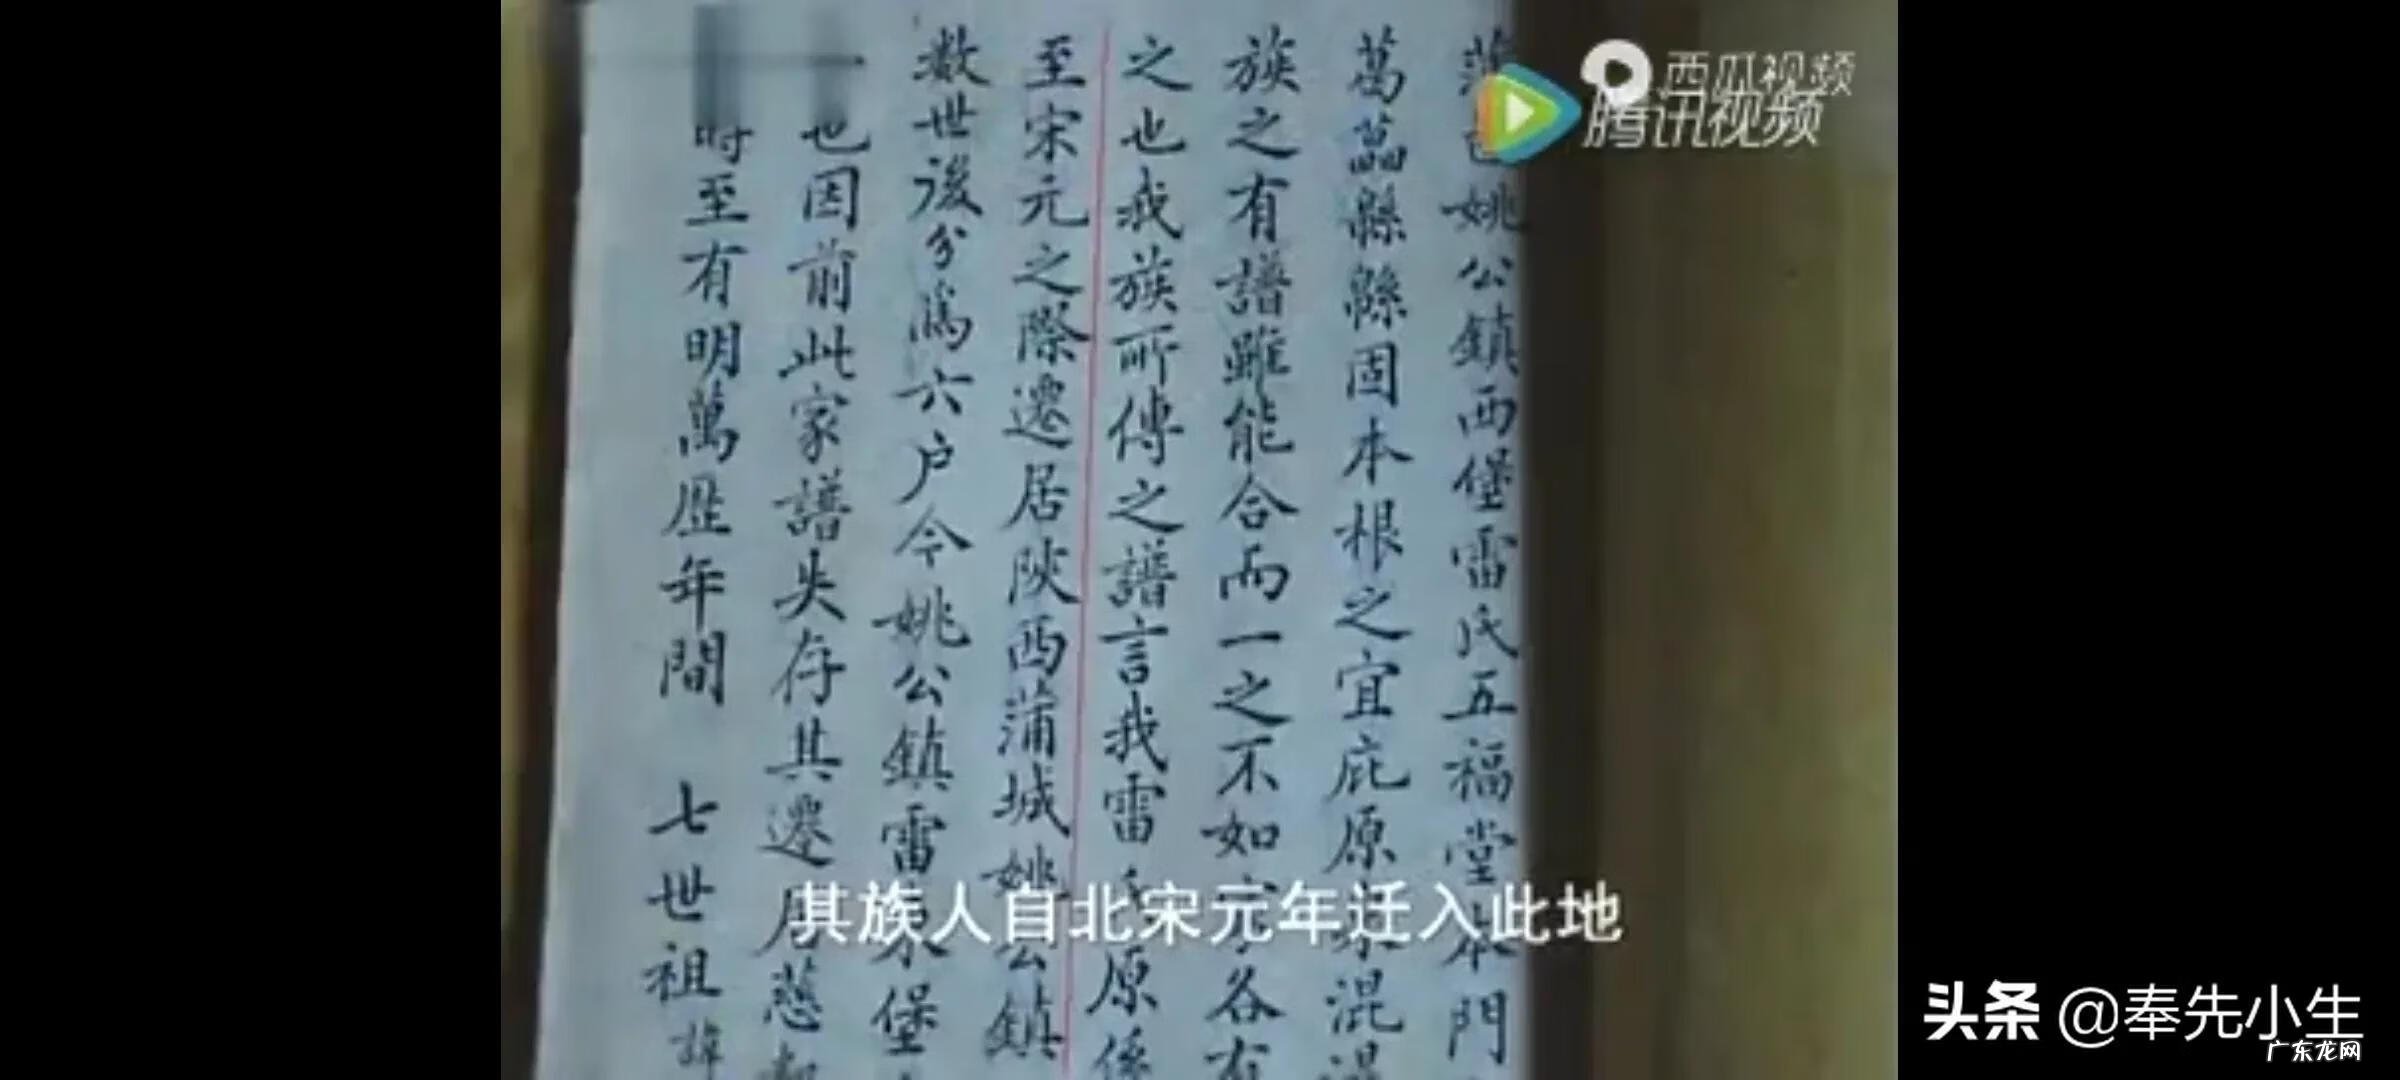 姚公鎮西堡雷氏五福堂本門
葛藟緜緜固本根之宜庇原
族之有譜雖能合而一之不如
之也我族所傳之譜言我雷氏原係
至宋元之際遷居陝西蒲城姚公鎮
数世後分爲六户今姚公鎮雷家堡
也因前此家譜失存其遷居
時至有明萬歷年間 七世祖諱
西瓜视频
腾讯视频
其族人自北宋元年迁入此地
头条 @奉先小生
广东龙网